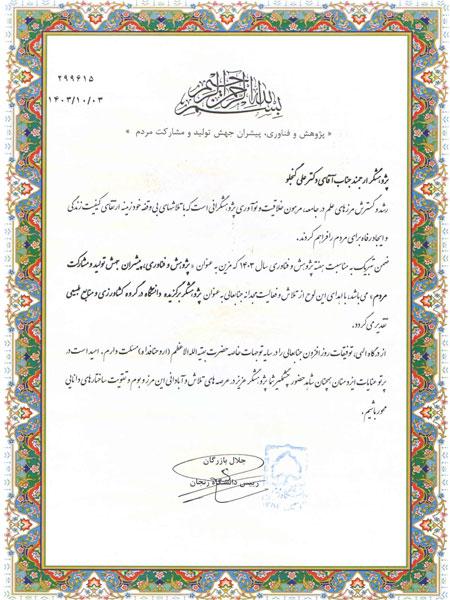 ۲۹۹۶۱۵
۱۴۰۳/۱۰/۰۳
بسم الله الرحمن الرحیم
« پژوهش و فناوری، پیشران جهش تولید و مشارکت مردم »
پژوهشگر ارجمند جناب آقای دکتر علی گنجلو
رشد و گسترش مرزهای علم در جامعه، مرهون خلاقیت و نوآوری پژوهشگرانی است که با تلاشهای بی وقفه خود زمینه ارتقای کیفیت زندگی
و ایجاد رفاه برای مردم را فراهم کردند.
ضمن تبریک به مناسبت هفته پژوهش و فناوری سال ۱۴۰۳ که مزین به عنوان «پژوهش و فناوری، پیشران جهش تولید و مشارکت
مردم» می باشد، با اهدای این لوح از تلاش و فعالیت مجدانه جنابعالی به عنوان پژوهشگر برگزیده دانشگاه در گروه کشاورزی و منابع طبیعی
تقدیر می گردد.
از درگاه الهی، توفیقات روز افزون جنابعالی را در سایه توجهات خاصه حضرت بقیه الله الاعظم (ارواحنا فداه) مسئلت دارم. امید است در
پرتو عنایات ایزد منان همچنان شاهد حضور چشمگیر شما پژوهشگر عزیز در عرصه های تلاش و آبادانی این مرز و بوم و تقویت ساختارهای دانایی
محور باشیم.
جلال بازرگان
رییس دانشگاه زنجان